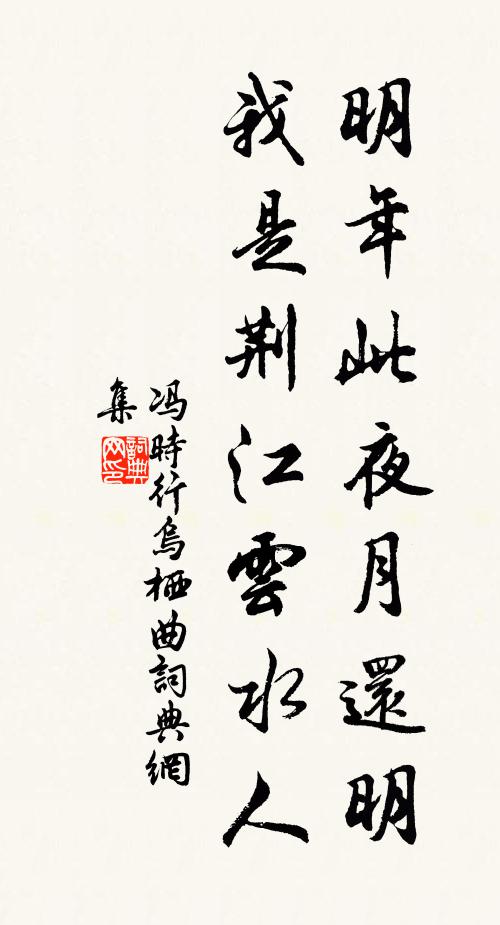 明年此夜月還明
我是荆江雲水人
冯時行烏栖曲詞典網
集
詞典
网印